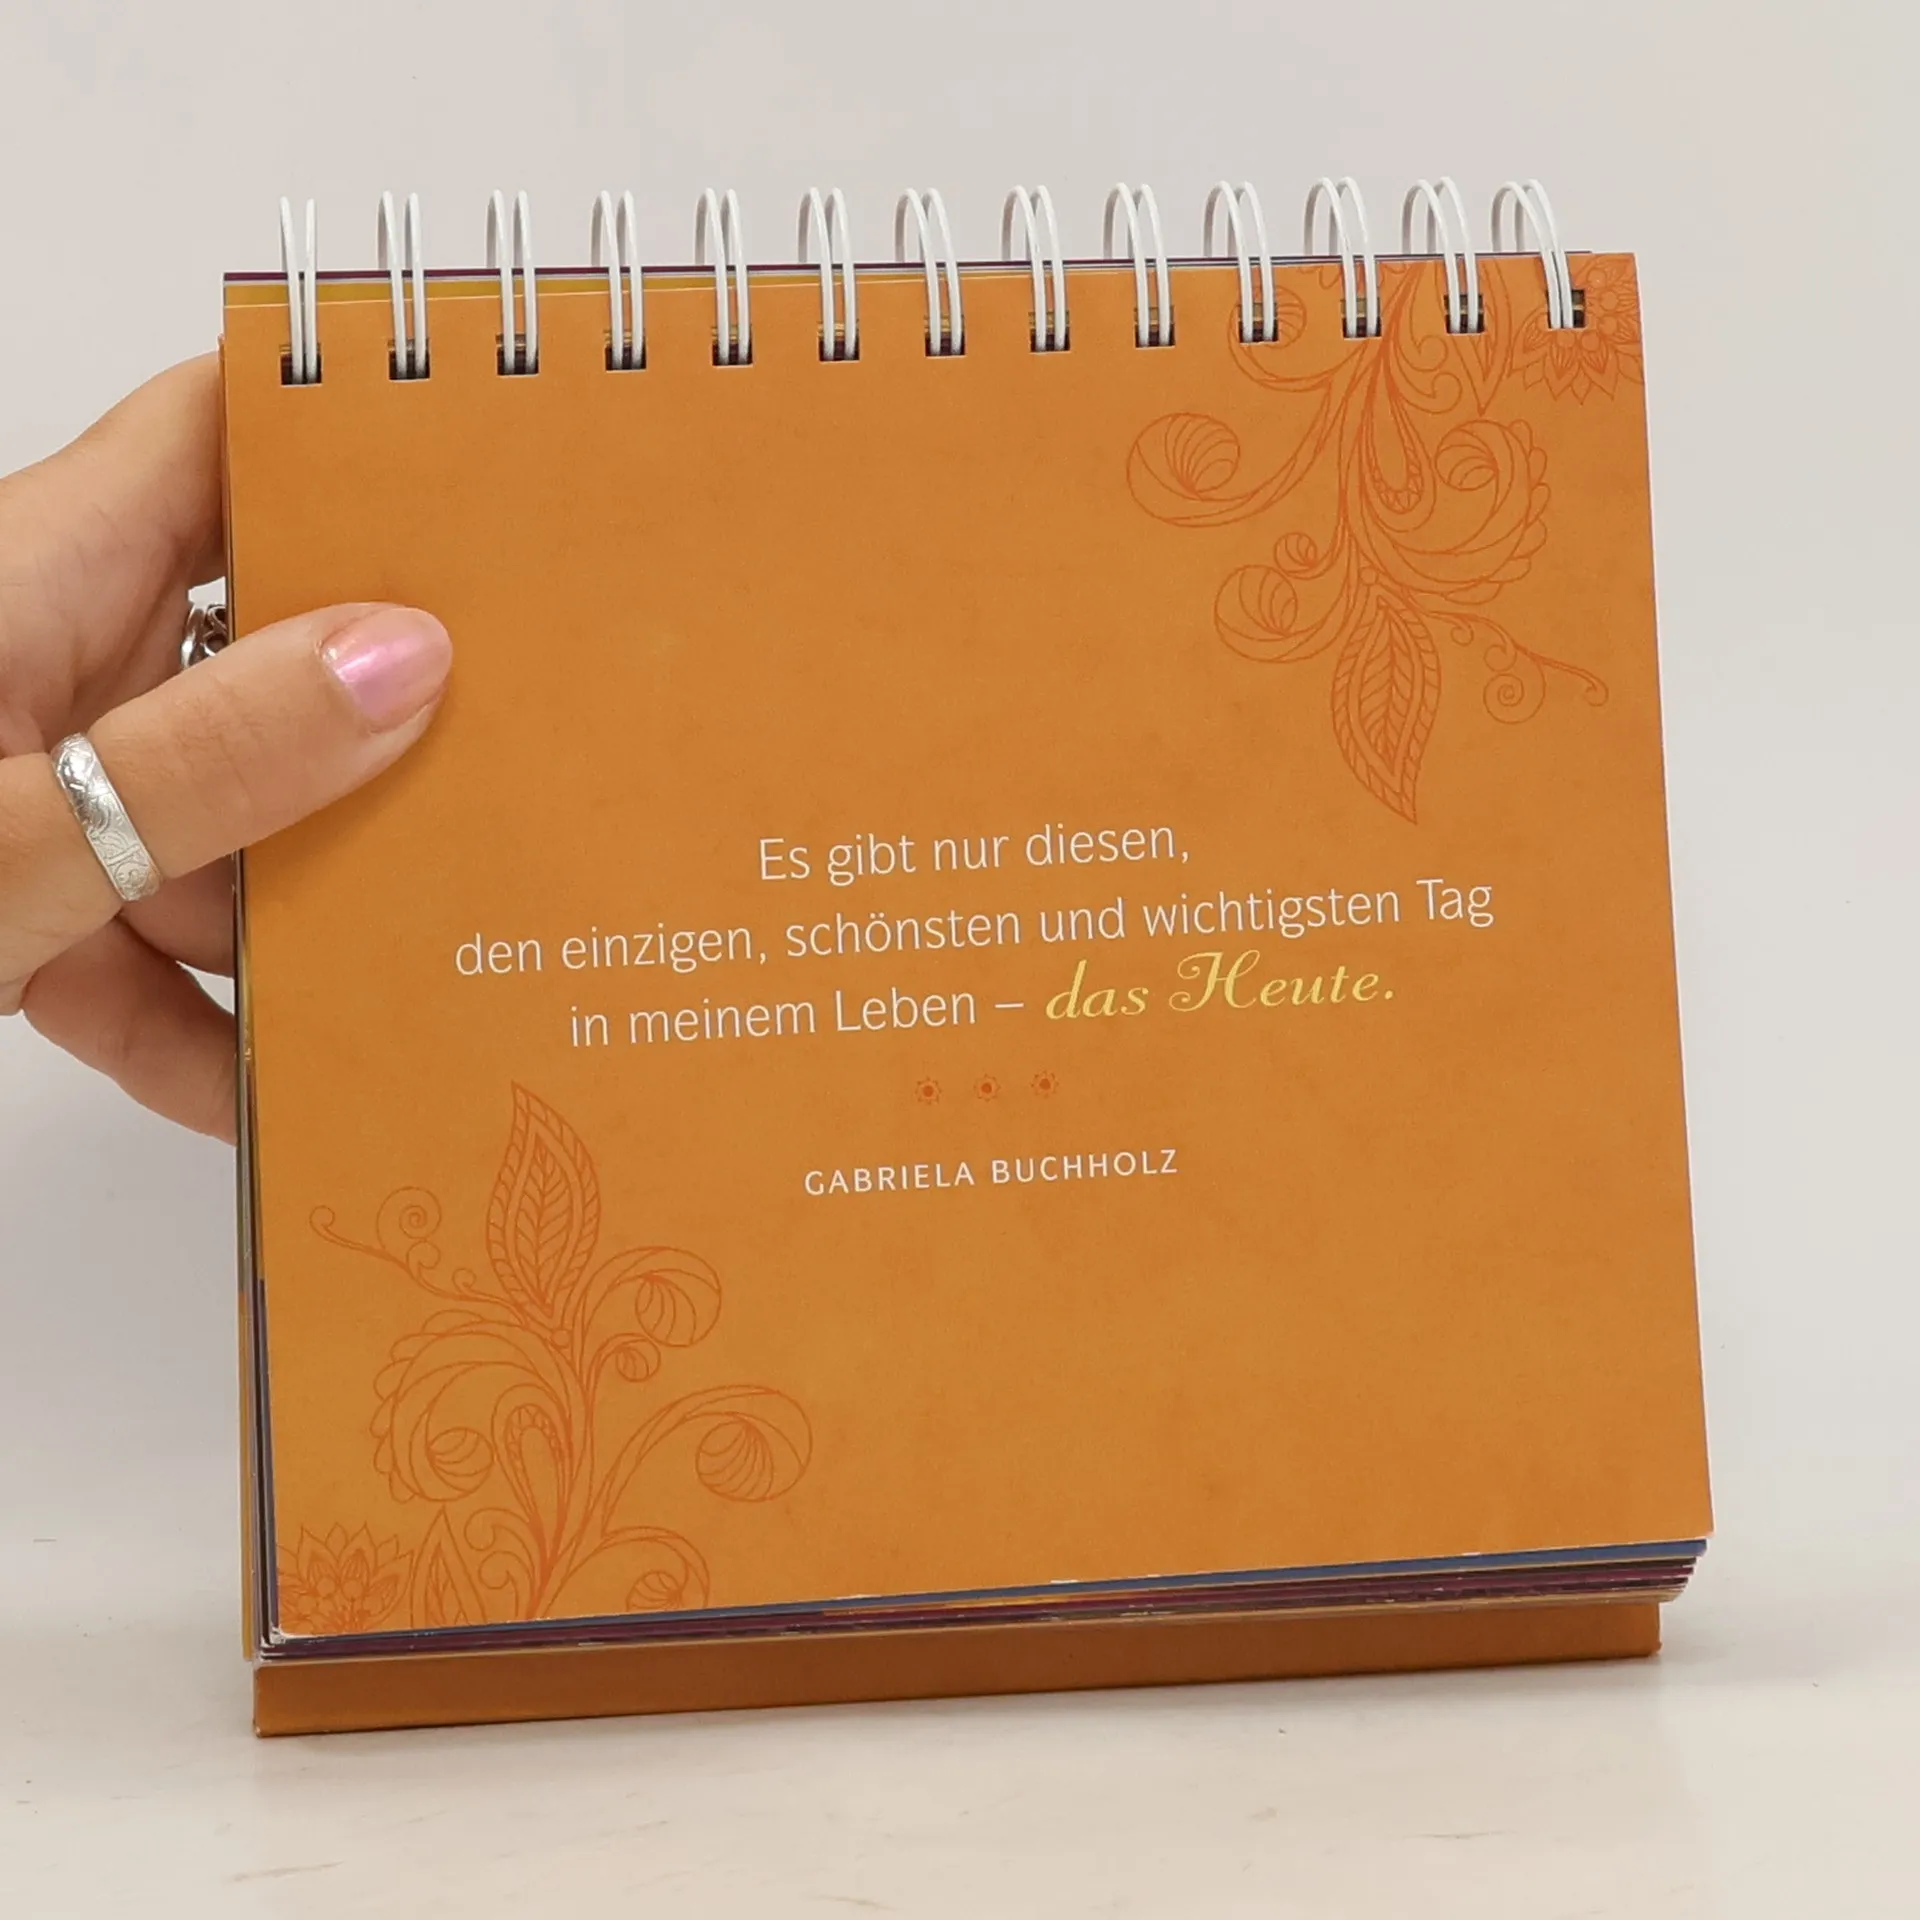 Es gibt nur diesen,
den einzigen, schönsten und wichtigsten Tag
in meinem Leben – das Heute.
GABRIELA BUCHHOLZ